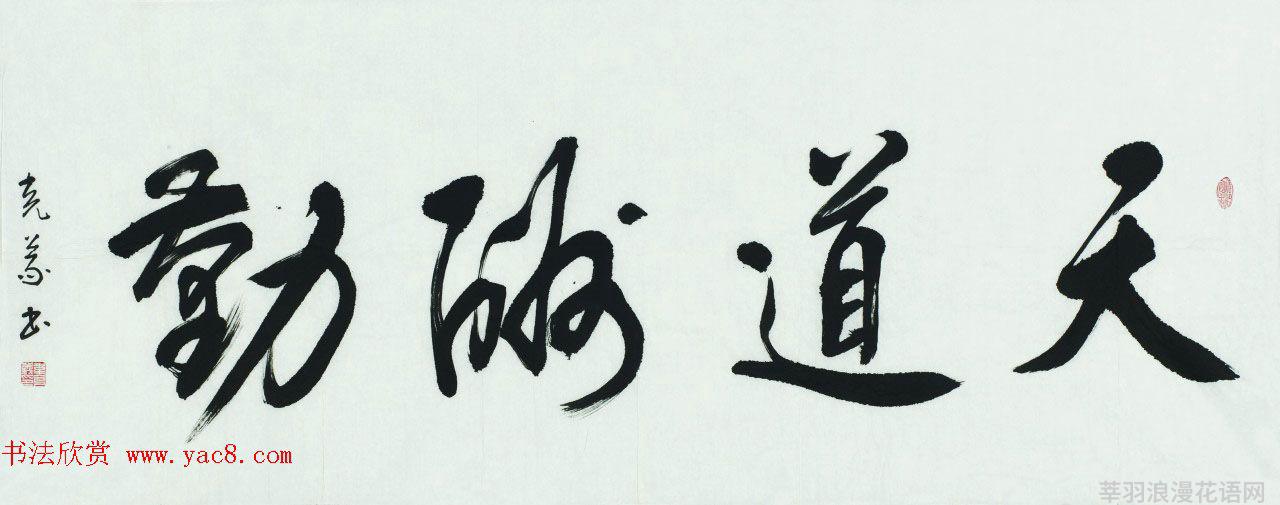 天道酬勤
克义书
书法欣赏 www.yac8.com
莘羽浪漫花语网